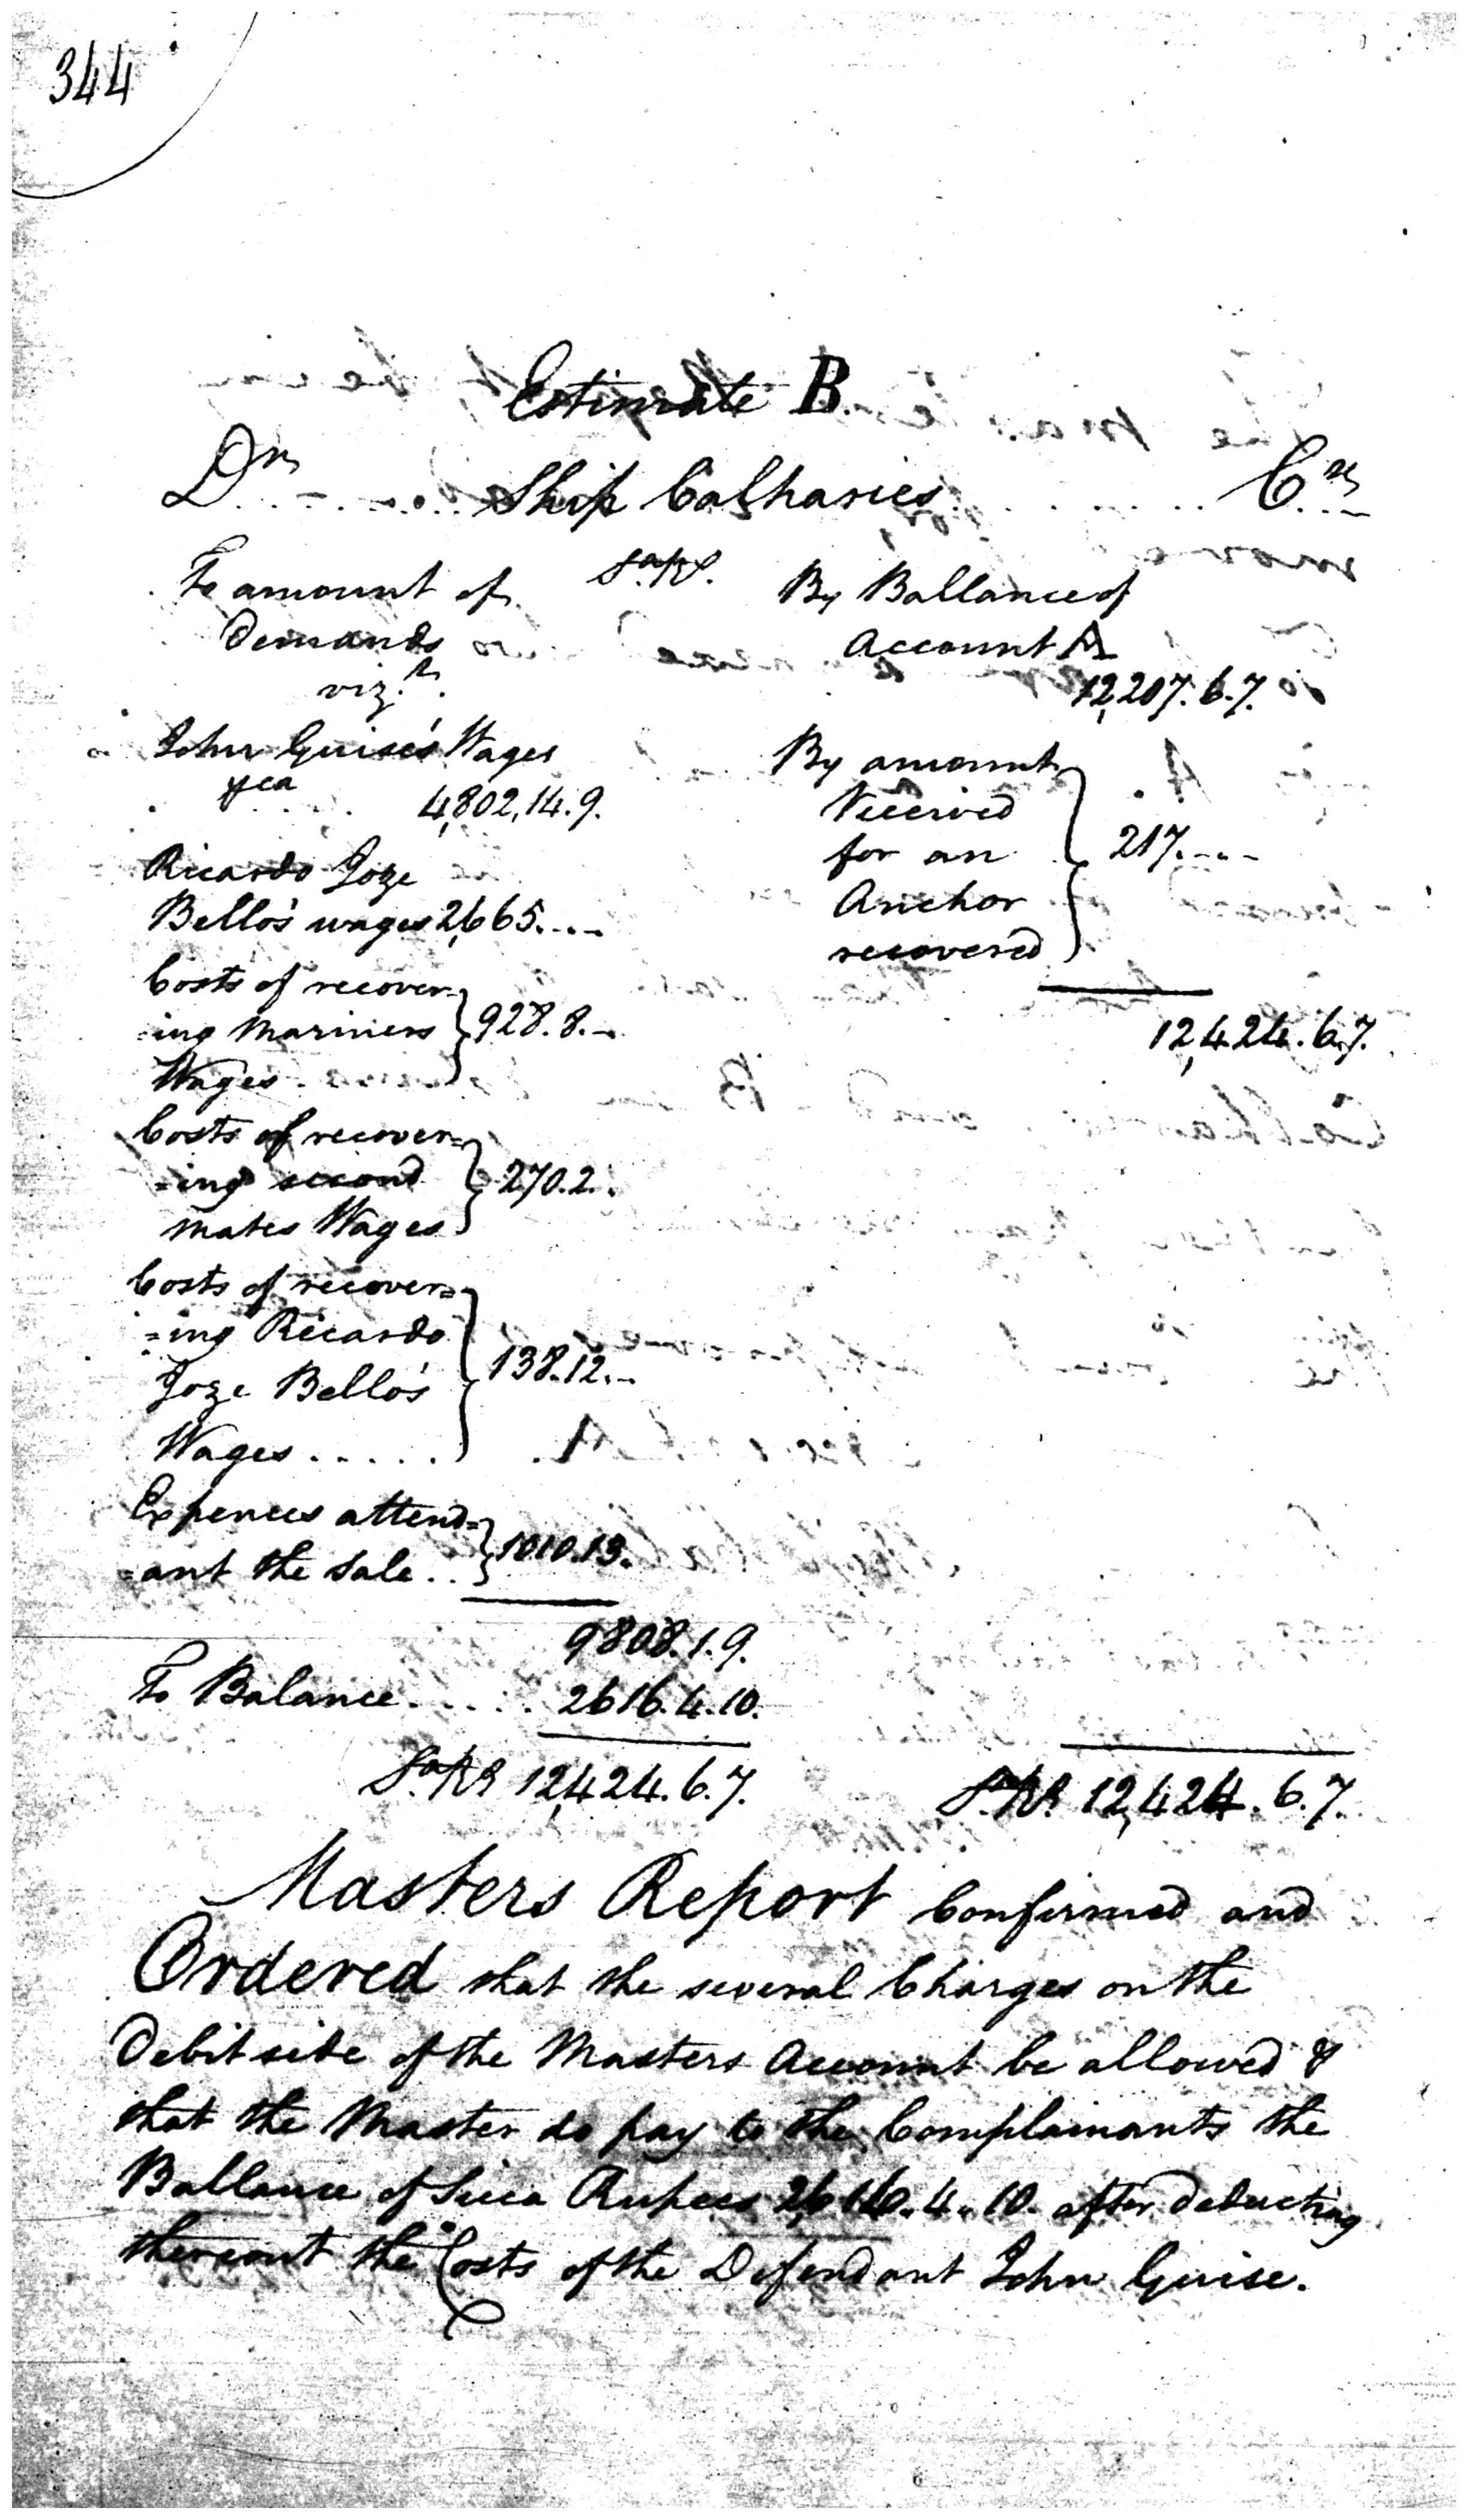 344
Estimate B.
Dr. . . . . . . Ship Catharies . . . . . . . Cr. . .
To amount of Sa.Rs.
Demands
viz.t
John Guise's Wages
4,802,14.9.
Ricardo Joze
Bello's wages 2,665. . .
Costs of recover=
=ing Mariners 928.8.-
Wages .
Costs of recover=
=ing second 270.2. .
mates Wages
Costs of recover=
=ing Ricardo
Joze Bello's 138.12. .
Wages . . . . .
Expences attend=
=ant the Sale . . 1010.13.
9808.1.9.
To Balance . . . . . 2616.4.10.
Sa.Rs 12,424.6.7.
By Ballance of
Account A
12,207.6.7.
By amount
Received
for an 217. . . .
Anchor
recovered
12,424.6.7.
Sa.Rs. 12,424.6.7.
Masters Report Confirmed and
Ordered that the several Charges on the
Debit side of the Masters Account be allowed &
that the Master do pay to the Complainants the
Ballance of Sicca Rupees 2,616.4.10. after deducting
thereout the Costs of the Defendant John Guise.